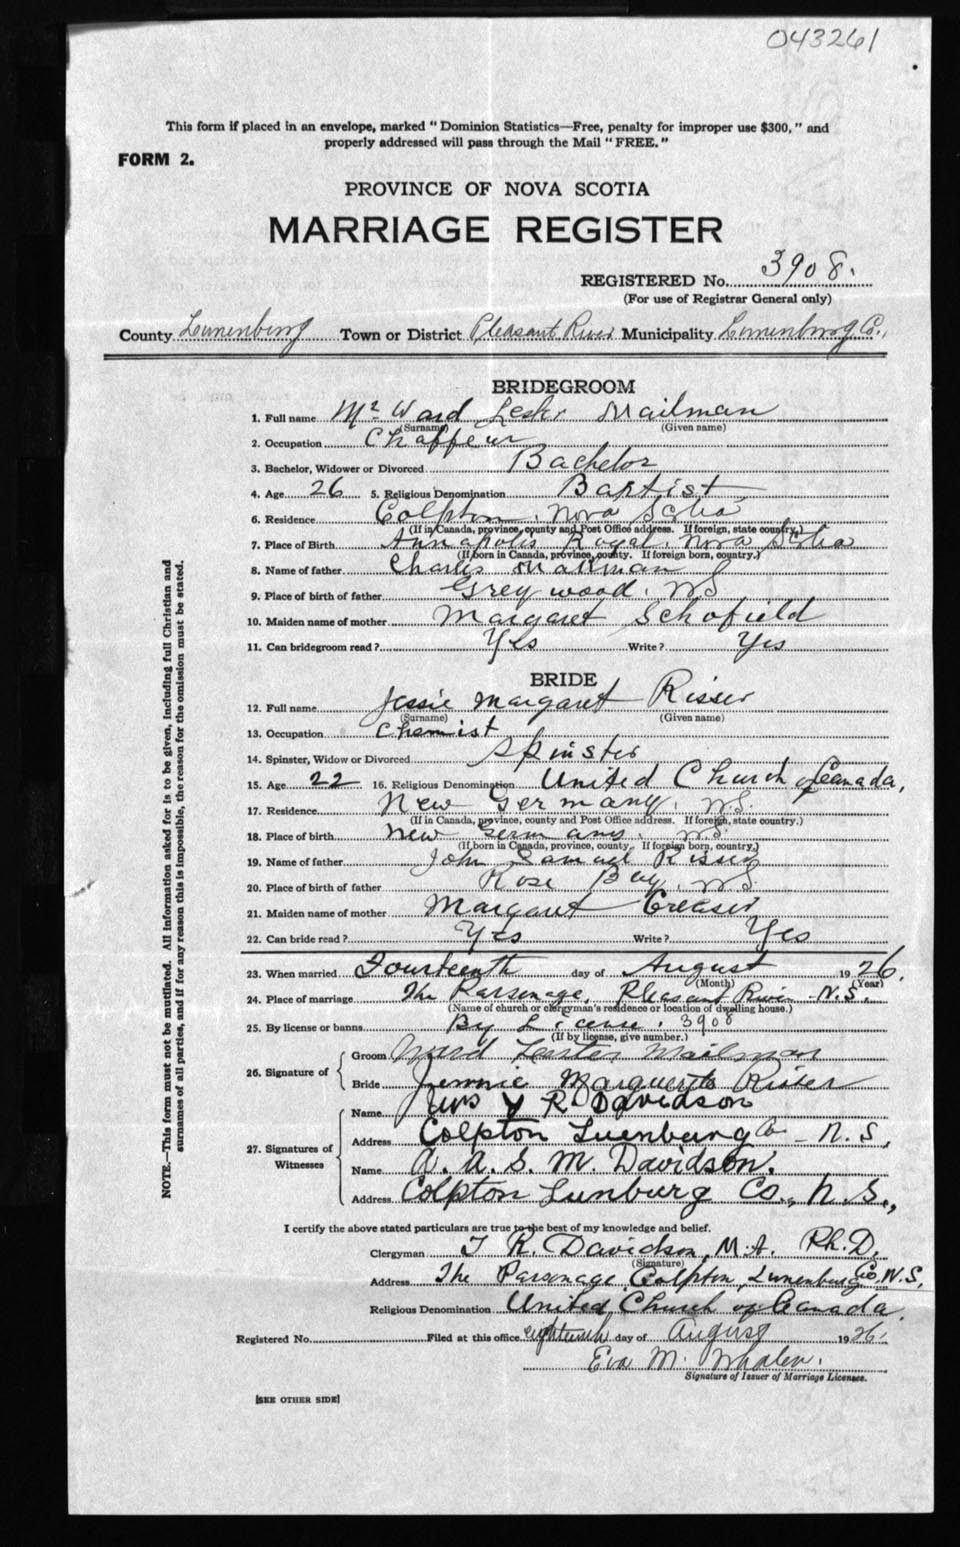 043261
This form if placed in an envelope, marked "Dominion Statistics—Free, penalty for improper use $300," and
properly addressed will pass through the Mail "FREE."
FORM 2.
PROVINCE OF NOVA SCOTIA
MARRIAGE REGISTER
REGISTERED No. 3908.
(For use of Registrar General only)
County Lunenburg Town or District Pleasant River Municipality Lunenburg Co.,
BRIDEGROOM
1. Full name Mr Ward Lester Mailman
(Surname) (Given name)
2. Occupation Chaffeur
3. Bachelor, Widower or Divorced Bachelor
4. Age 26 5. Religious Denomination Baptist
6. Residence Colpton, Nova Scotia
(If in Canada, province, county and Post Office address. If foreign, state country.)
7. Place of Birth Annapolis Royal, Nova Scotia
(If born in Canada, province, county. If foreign born, country.)
8. Name of father Charles Mailman
9. Place of birth of father Greywood, NS
10. Maiden name of mother Margaret Schofield
11. Can bridegroom read? Yes Write? Yes
BRIDE
12. Full name Jessie Margaret Risser
(Surname) (Given name)
13. Occupation Chemist
14. Spinster, Widow or Divorced Spinster
15. Age 22 16. Religious Denomination United Church of Canada,
17. Residence New Germany, N.S.
(If in Canada, province, county and Post Office address. If foreign, state country.)
18. Place of birth New Germany, N.S.
(If born in Canada, province, county. If foreign born, country.)
19. Name of father John Samuel Risser
20. Place of birth of father Rose Bay, N.S.
21. Maiden name of mother Margaret Creaser
22. Can bride read? Yes Write? Yes
23. When married Fourteenth day of August 1926.
(Month) (Year)
24. Place of marriage The Parsonage, Pleasant River N.S.
(Name of church or clergyman's residence or location of dwelling house.)
25. By license or banns By License. 3908
(If by license, give number.)
26. Signature of
Groom Ward Lester Mailman
Bride Jennie Marguerite Risser
27. Signatures of Witnesses
Name Mrs R Davidson
Address Colpton Luenburg Co - N.S,
Name A. A. S. M. Davidson.
Address Colpton Lunburg Co., N.S.,
I certify the above stated particulars are true to the best of my knowledge and belief.
Clergyman T R. Davidson, M.A. Ph.D.
(Signature)
Address The Parsonage, Colpton, Lunenburg Co, N.S,
Religious Denomination United Church of Canada
Registered No. Filed at this office eighteenth day of August 1926.
Eva M. Whalen.
Signature of Issuer of Marriage Licenses.
[SEE OTHER SIDE]
NOTE.—This form must not be mutilated. All information asked for is to be given, including full Christian and
surnames of all parties, and if for any reason this is impossible, the reason for the omission must be stated.